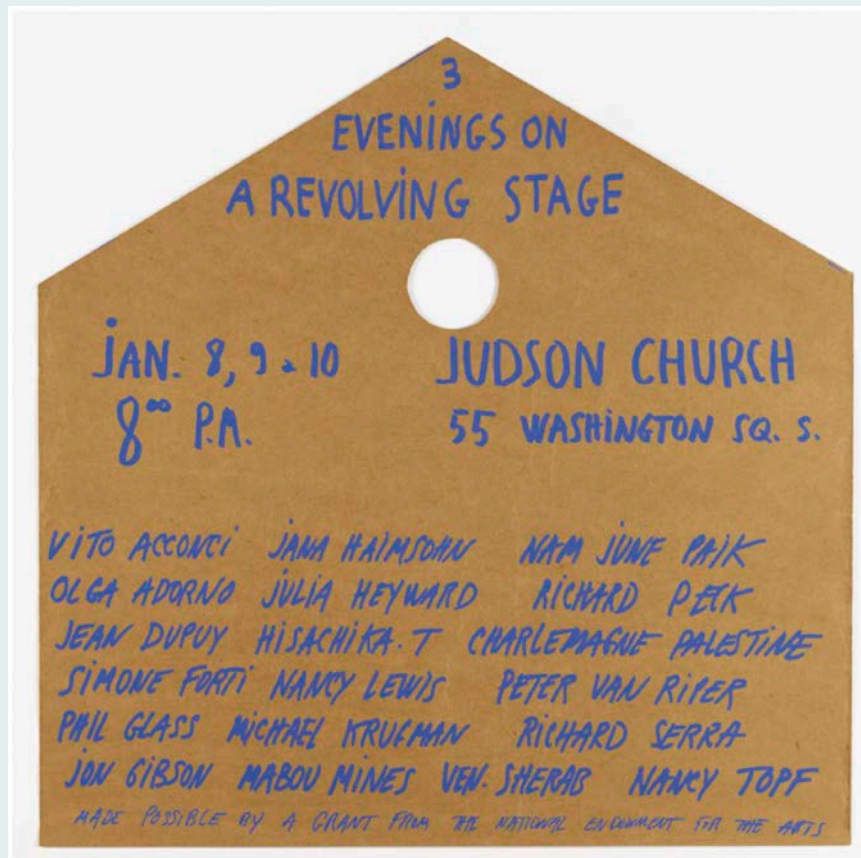 3
EVENINGS ON
A REVOLVING STAGE
JAN. 8, 9 & 10 JUDSON CHURCH
8⁰⁰ P.M. 55 WASHINGTON SQ. S.
VITO ACCONCI JANA HAIMSOHN NAM JUNE PAIK
OLGA ADORNO JULIA HEYWARD RICHARD PECK
JEAN DUPUY HISACHIKA.T CHARLEMAGNE PALESTINE
SIMONE FORTI NANCY LEWIS PETER VAN RIPER
PHIL GLASS MICHAEL KRUGMAN RICHARD SERRA
JON GIBSON MABOU MINES VEN. SHERAB NANCY TOPF
MADE POSSIBLE BY A GRANT FROM THE NATIONAL ENDOWMENT FOR THE ARTS